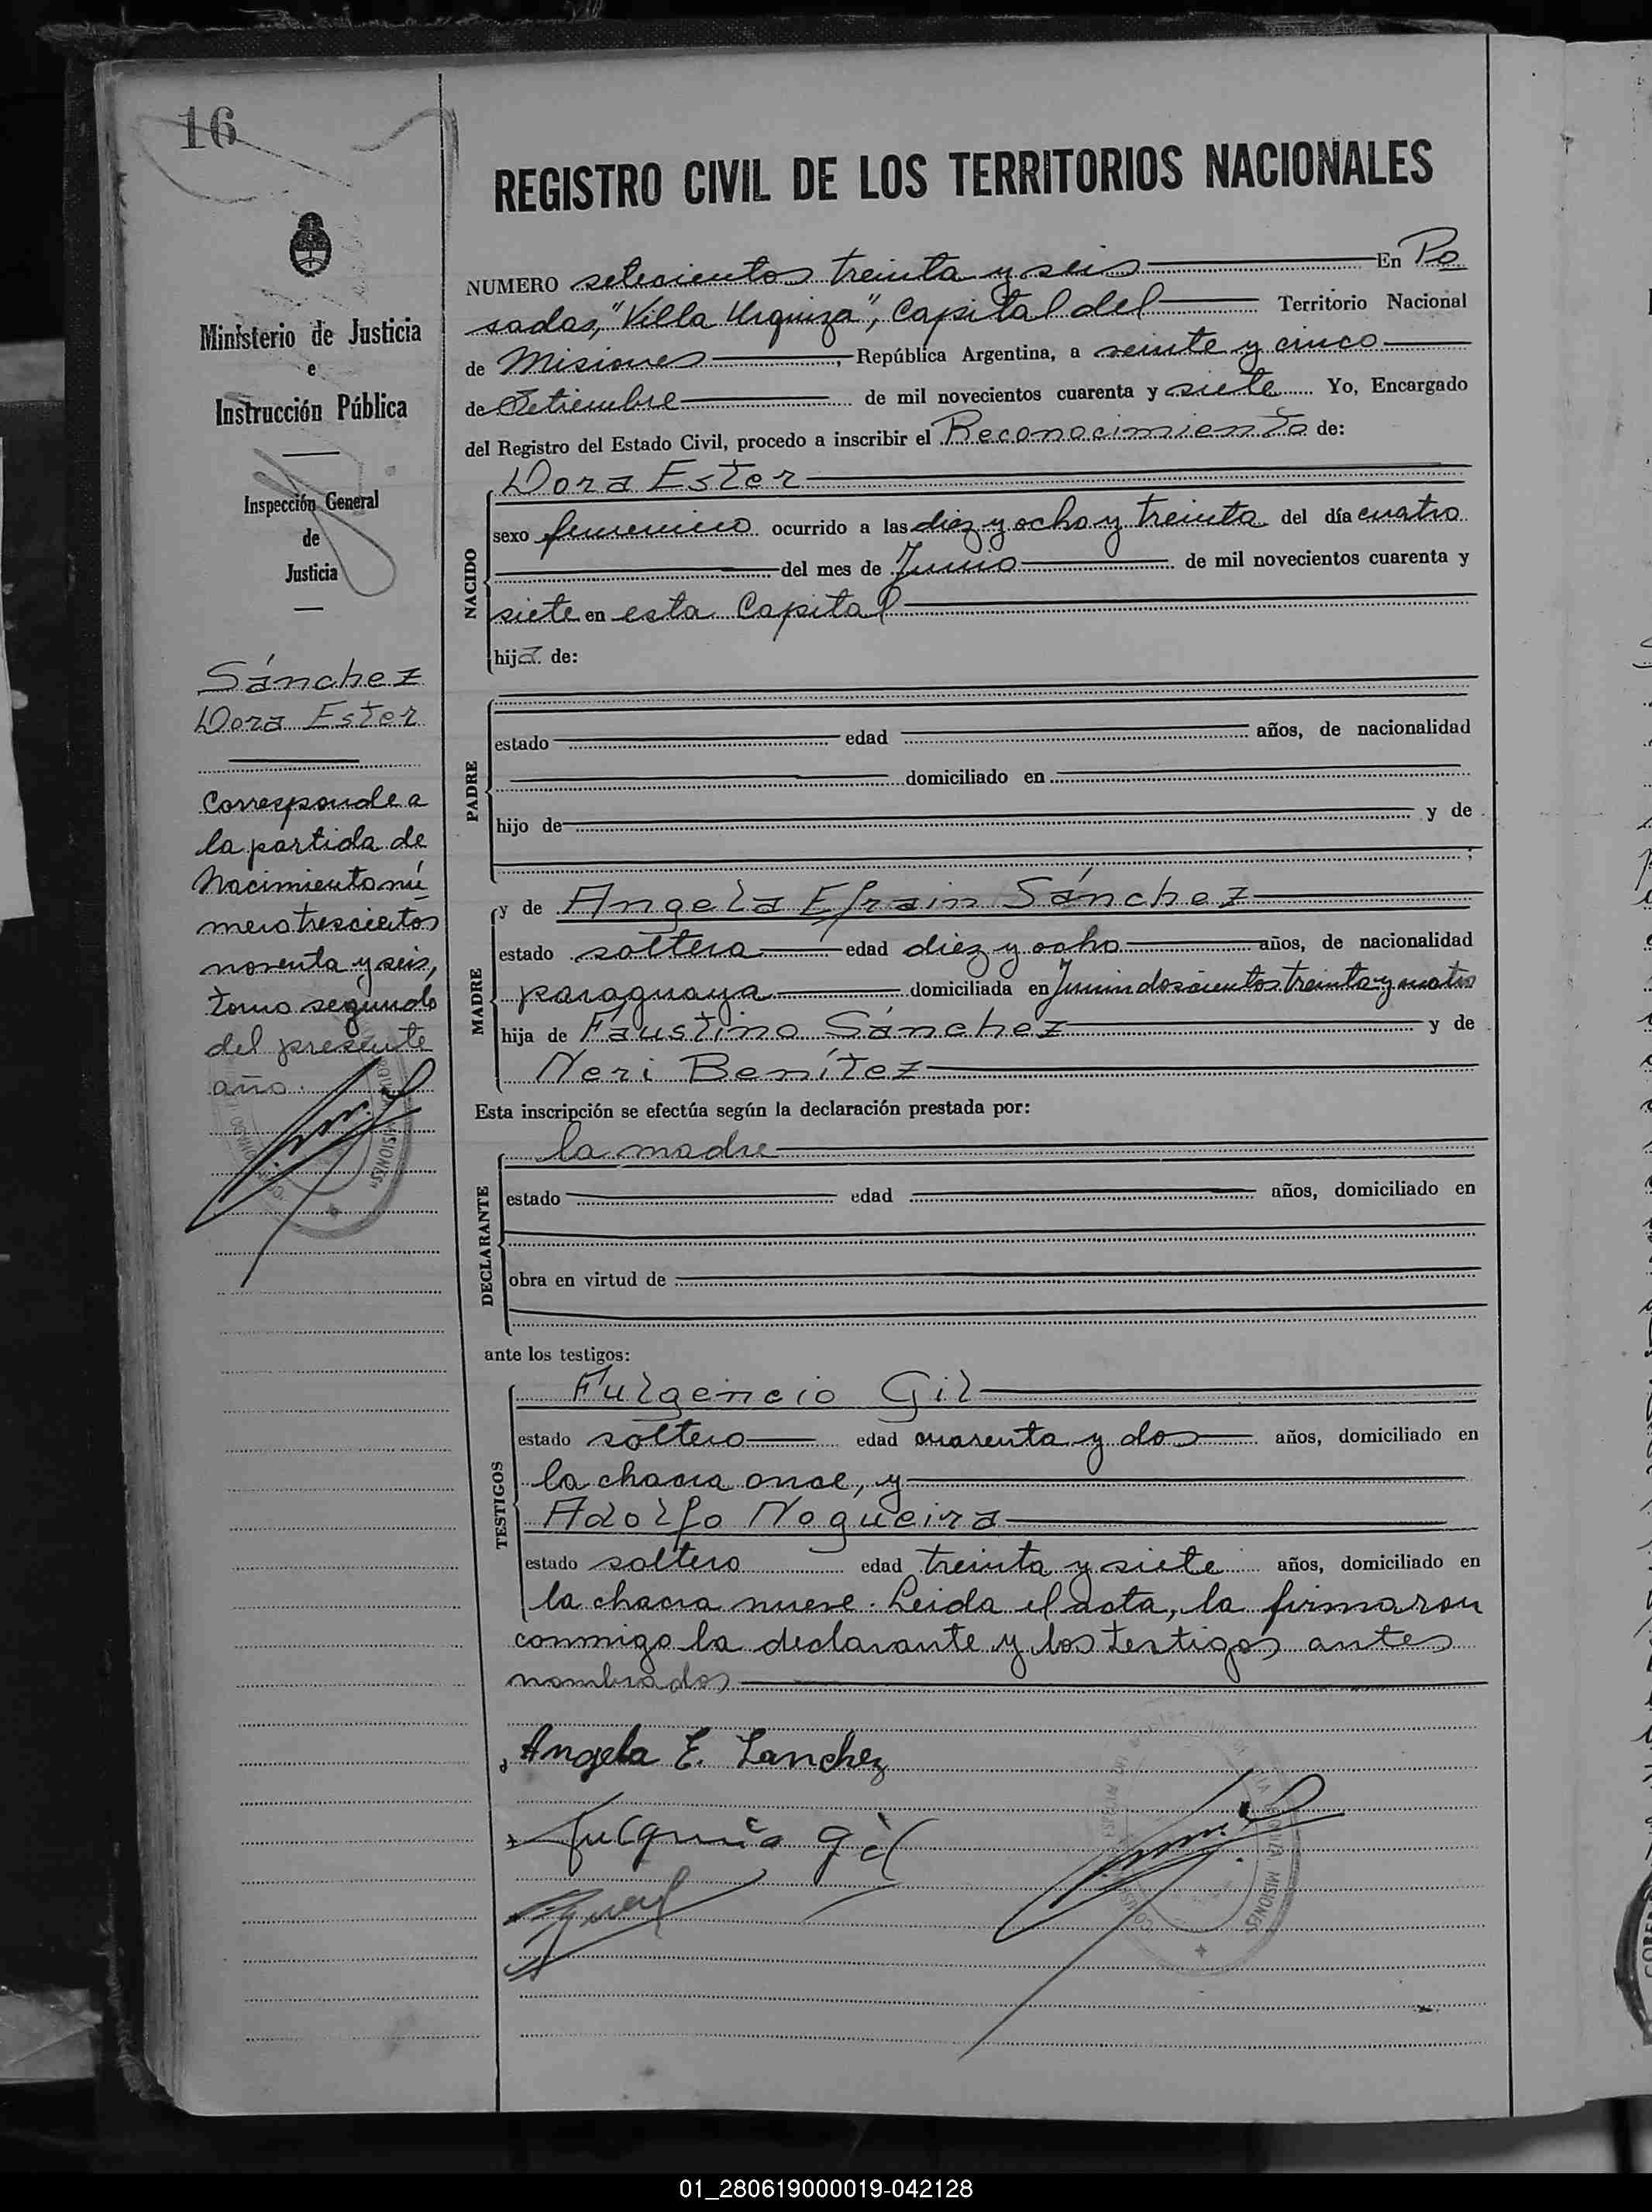 16
Ministerio de Justicia
e
Instrucción Pública
Inspección General
de
Justicia
Sánchez
Dora Ester
Corresponde a
la partida de
Nacimiento nú
mero trescientos
noventa y seis,
tomo segundo
del presente
año.
REGISTRO CIVIL DE LOS TERRITORIOS NACIONALES
NUMERO setecientos treinta y seis En Po
sadas, "Villa Urquiza", Capital del Territorio Nacional
de Misiones, República Argentina, a veinte y cinco
de Setiembre de mil novecientos cuarenta y siete Yo, Encargado
del Registro del Estado Civil, procedo a inscribir el Reconocimiento de:
NACIDO
Dora Ester
sexo femenino ocurrido a las diez y ocho y treinta del día cuatro
del mes de Junio de mil novecientos cuarenta y
siete en esta Capital
hija de:
PADRE
estado edad años, de nacionalidad
domiciliado en
hijo de y de
;
MADRE
y de Angela Efrain Sánchez
estado soltera edad diez y ocho años, de nacionalidad
paraguaya domiciliada en Junin doscientos treinta y cuatro
hija de Faustino Sánchez y de
Neri Benítez
Esta inscripción se efectúa según la declaración prestada por:
DECLARANTE
la madre
estado edad años, domiciliado en
obra en virtud de
ante los testigos:
TESTIGOS
Fulgencio Gil
estado soltero edad cuarenta y dos años, domiciliado en
la chacra once, y
Adolfo Nogueira
estado soltero edad treinta y siete años, domiciliado en
la chacra nueve. Leida el acta, la firmaron
conmigo la declarante y los testigos antes
nombrados
Angela E. Sanchez
Fulgencio Gil
MISIONES
01_280619000019-042128